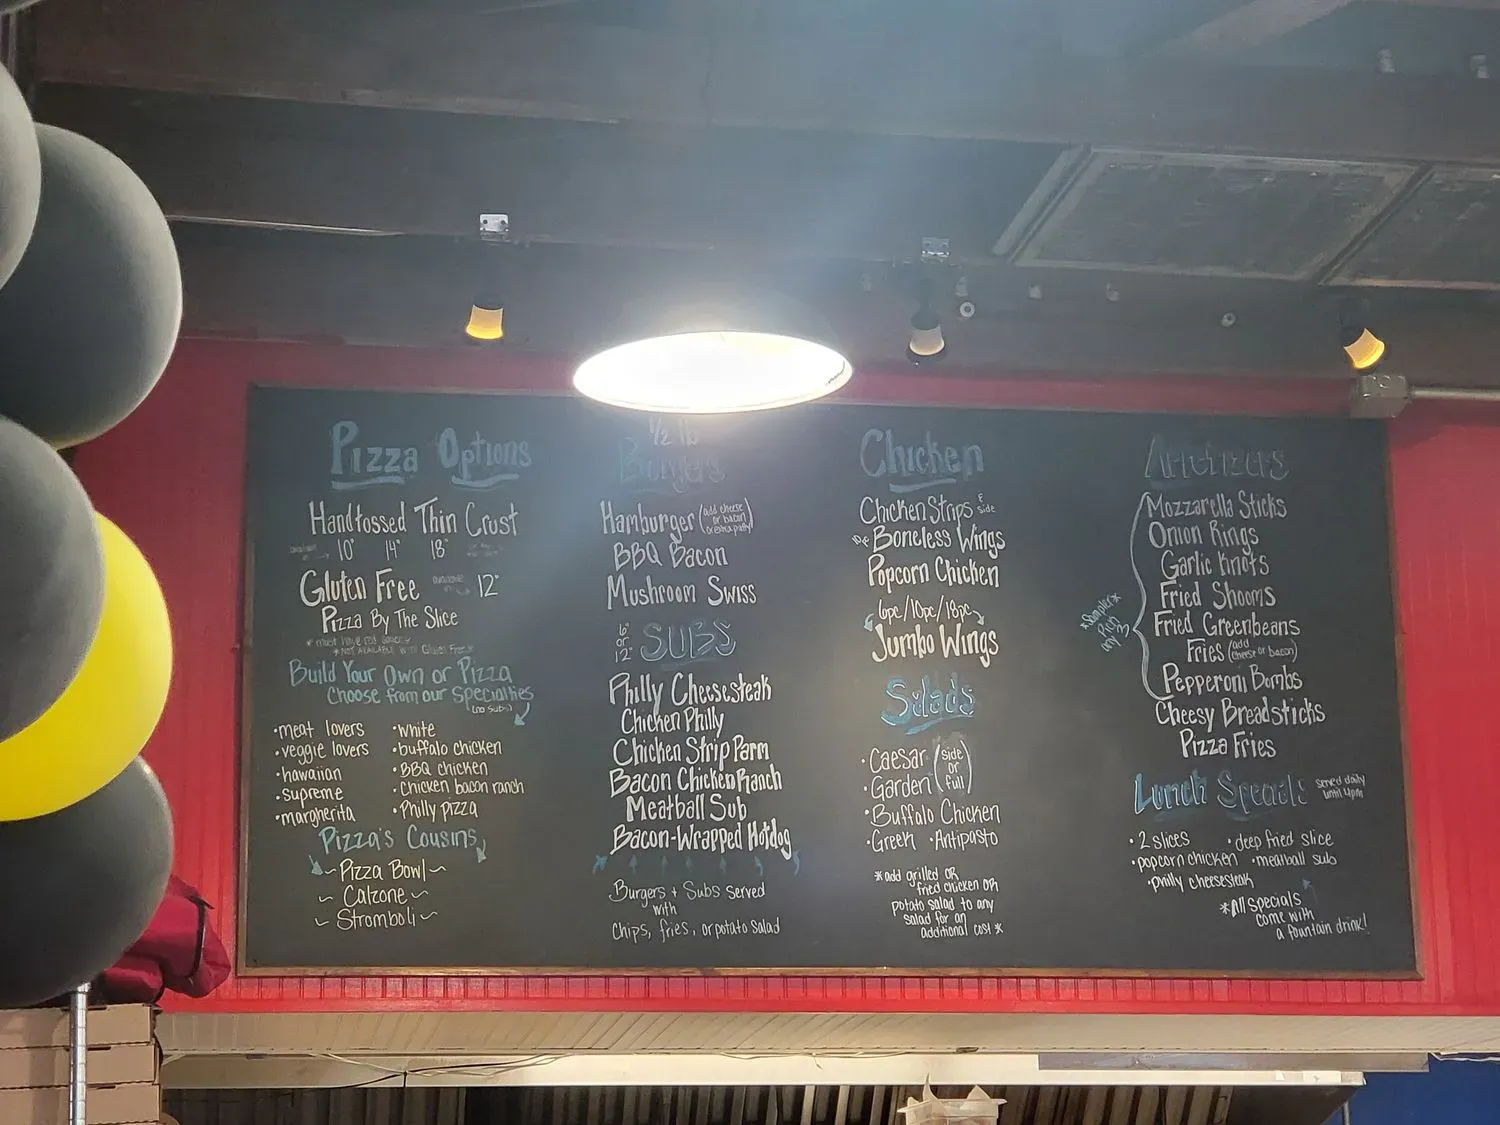 Pizza Options
Handtossed Thin Crust
10" 14" 18"
Gluten Free 12"
Pizza By The Slice
*NOT AVAILABLE with Gluten Free*
Build Your Own or Pizza
Choose from our Specialties
(no subs)
•meat lovers
•veggie lovers
•hawaiian
•supreme
•margherita
•white
•buffalo chicken
•BBQ chicken
•Chicken bacon ranch
•Philly pizza
Pizza's Cousins
~Pizza Bowl~
~Calzone~
~Stromboli~
1/2 lb
Burgers
Hamburger (add cheese
or bacon
or extra patty)
BBQ Bacon
Mushroom Swiss
6"
or
12"
SUBS
Philly Cheesesteak
Chicken Philly
Chicken Strip Parm
Bacon Chicken Ranch
Meatball Sub
Bacon-Wrapped Hotdog
Burgers + Subs served
with
Chips, fries, or potato salad
Chicken
Chicken Strips & side
Boneless Wings
Popcorn Chicken
6pc/10pc/18pc
Jumbo Wings
Salads
•Caesar
•Garden
(side
or
full)
•Buffalo Chicken
•Greek •Antipasto
*add grilled OR
fried chicken OR
potato salad to any
salad for an
additional cost*
Appetizers
Mozzarella Sticks
Onion Rings
Garlic Knots
Fried Shooms
Fried Greenbeans
Fries (add
cheese or bacon)
Pepperoni Bombs
Cheesy Breadsticks
Pizza Fries
*Sampler*
Pick
any 3
Lunch Specials
served daily
until 4pm
•2 slices
•popcorn chicken
•philly cheesesteak
•deep fried slice
•meatball sub
*All specials
come with
a fountain drink!